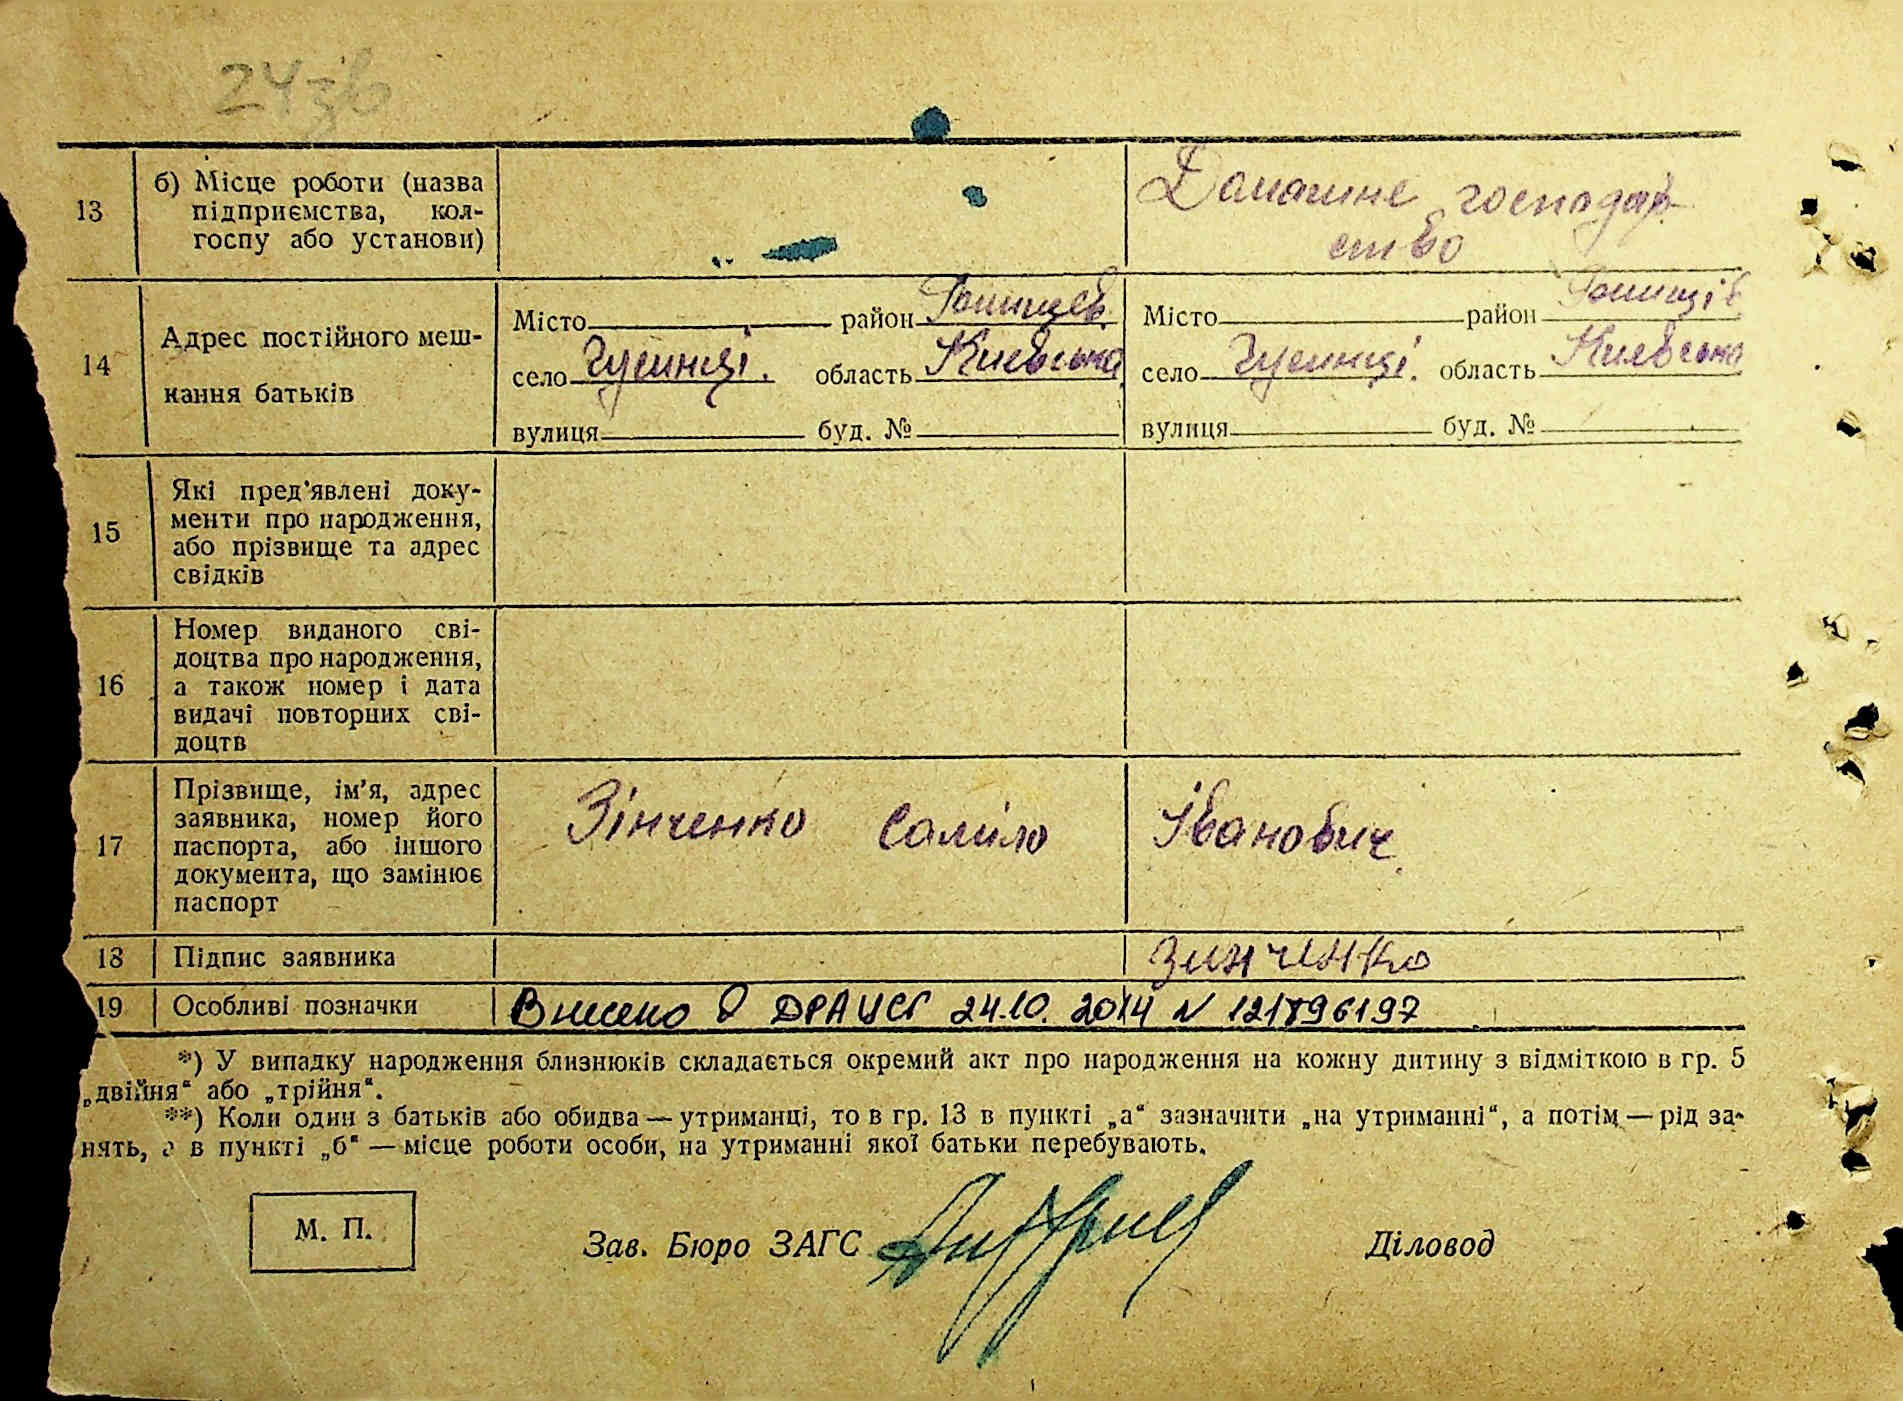 24зв
13
б) Місце роботи (назва
підприємства, кол-
госпу або установи)
Домашне господар
ство
14
Адрес постійного меш-
кання батьків
Місто район
село Гусинці. область Киевська
вулиця буд. №
Місто район
село Гусинці. область Киевська
вулиця буд. №
15
Які пред'явлені доку-
менти про народження,
або прізвище та адрес
свідків
16
Номер виданого сві-
доцтва про народження,
а також номер і дата
видачі повторних сві-
доцтв
17
Прізвище, ім'я, адрес
заявника, номер його
паспорта, або іншого
документа, що замінює
паспорт
Зінченко Іванович
18 Підпис заявника Зинченко
19 Особливі позначки Внесено в ДРАЦСГ 24.10. 2014 N 121896197
*) У випадку народження близнюків складається окремий акт про народження на кожну дитину з відміткою в гр. 5
„двійня“ або „трійня“.
**) Коли один з батьків або обидва — утриманці, то в гр. 13 в пункті „а“ зазначити „на утриманні“, а потім — рід за-
нять, а в пункті „б“ — місце роботи особи, на утриманні якої батьки перебувають.
М. П.
Зав. Бюро ЗАГС
Діловод